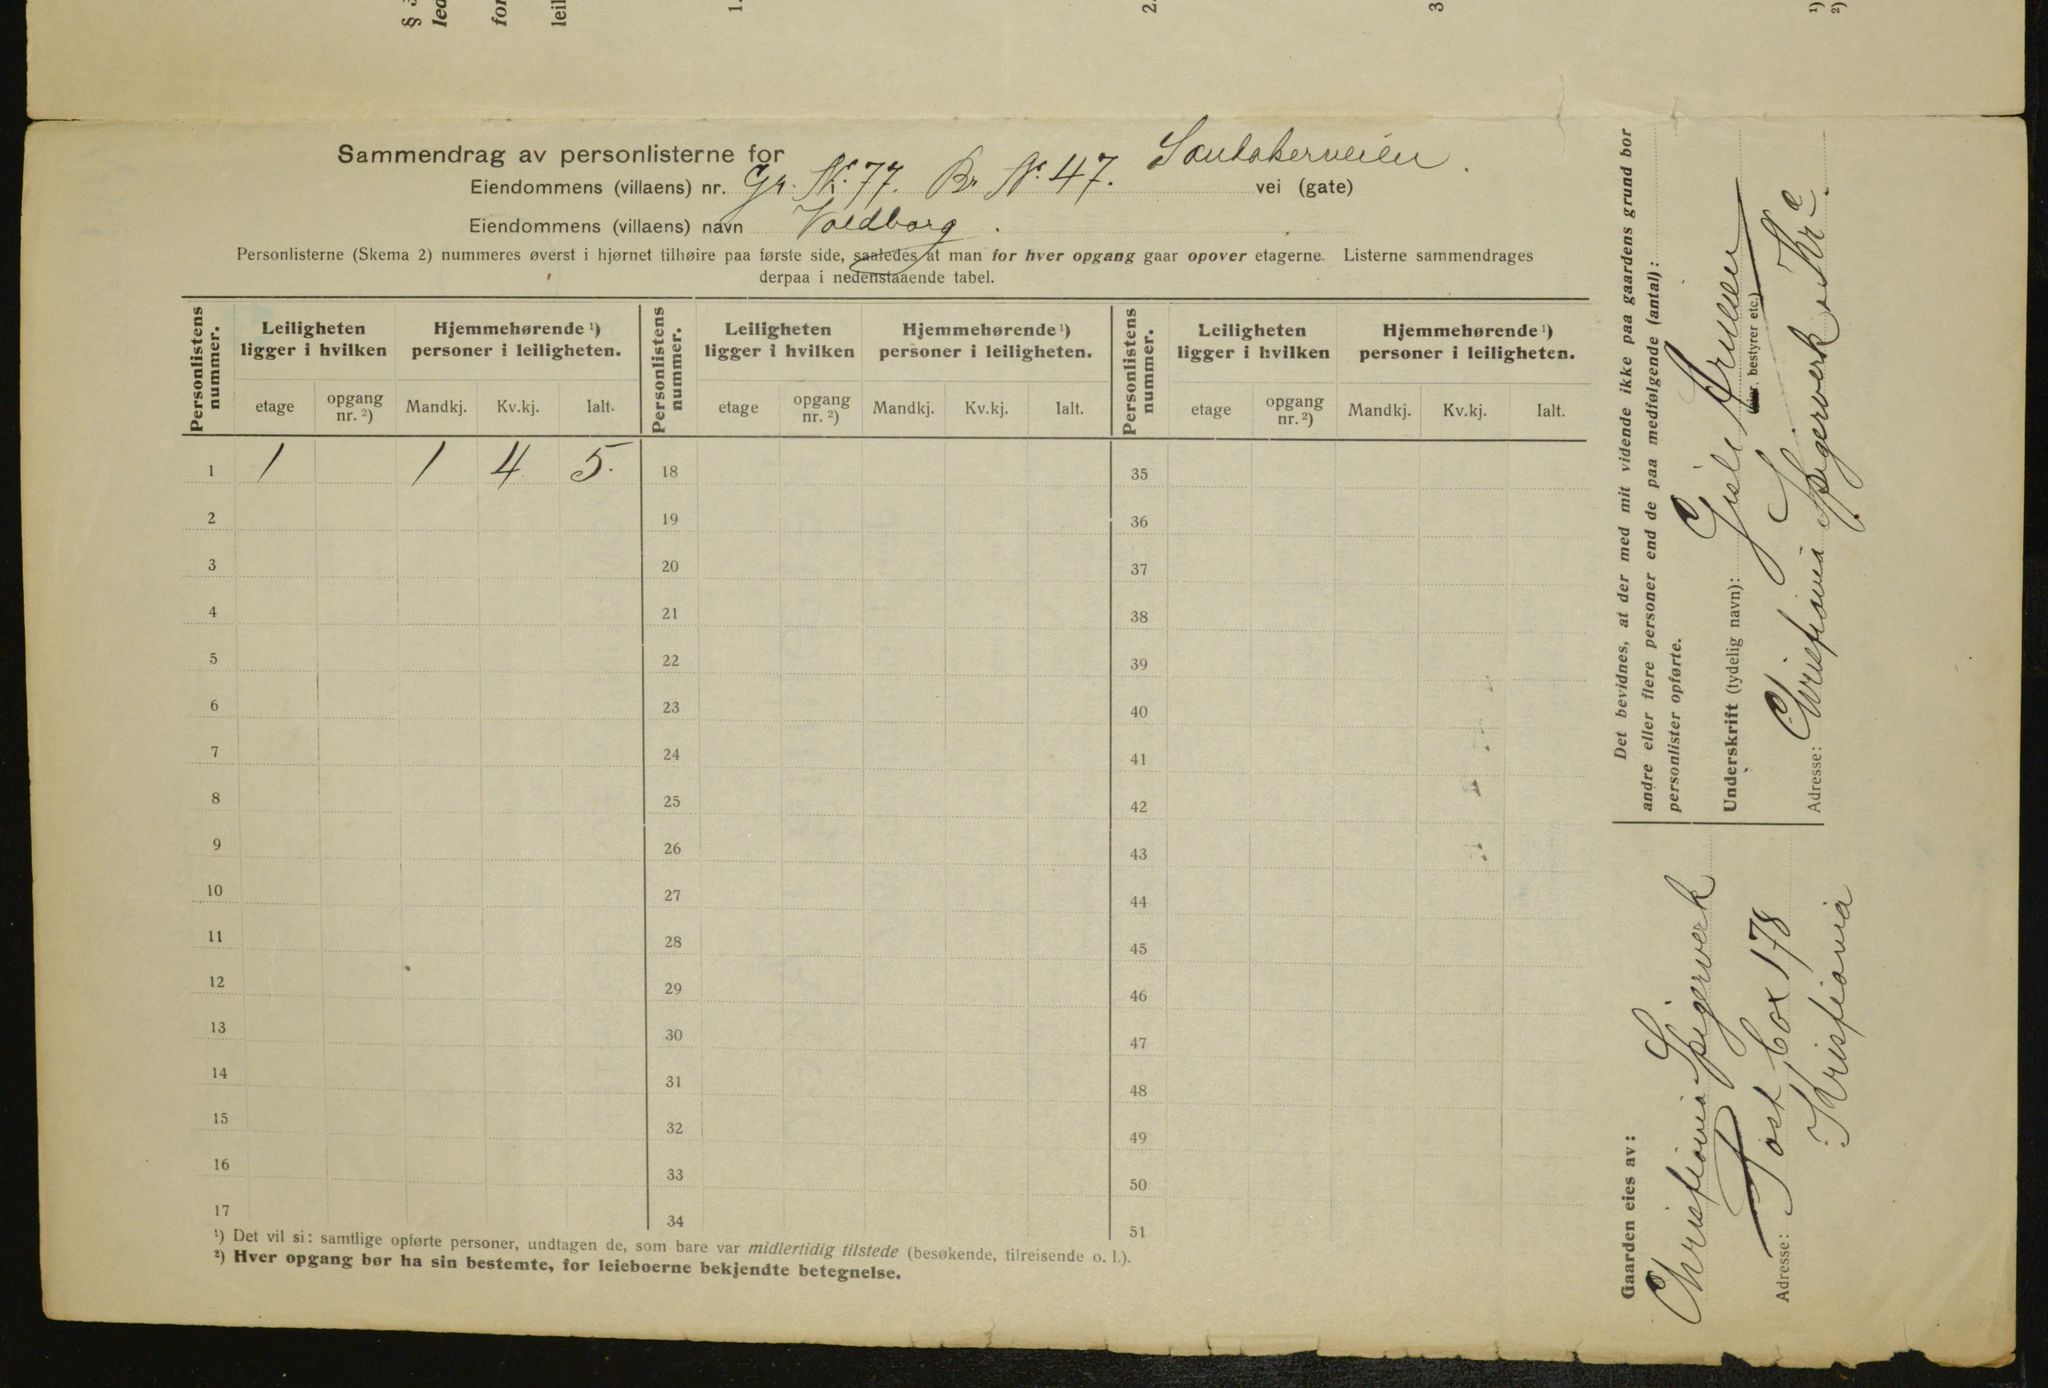 Sammendrag av personlisterne for
Eiendommens (villaens) nr. Gr. Nr. 77. Br. Nr. 47. Sandakerveien. vei (gate)
Eiendommens (villaens) navn Voldborg.
Personlisterne (Skema 2) nummeres øverst i hjørnet tilhøire paa første side, saaledes at man for hver opgang gaar opover etagerne. Listerne sammendrages
derpaa i nedenstaaende tabel.
Personlistens nummer. Leiligheten ligger i hvilken Hjemmehørende ¹) personer i leiligheten. Personlistens nummer. Leiligheten ligger i hvilken Hjemmehørende ¹) personer i leiligheten. Personlistens nummer. Leiligheten ligger i hvilken Hjemmehørende ¹) personer i leiligheten.
etage opgang nr. ²) Mandkj. Kv.kj. Ialt. etage opgang nr. ²) Mandkj. Kv.kj. Ialt. etage opgang nr. ²) Mandkj. Kv.kj. Ialt.
1 1 1 4 5. 18 35
2 19 36
3 20 37
4 21 38
5 22 39
6 23 40
7 24 41
8 25 42
9 26 43
10 27 44
11 28 45
12 29 46
13 30 47
14 31 48
15 32 49
16 33 50
17 34 51
¹) Det vil si: samtlige opførte personer, undtagen de, som bare var midlertidig tilstede (besøkende, tilreisende o. l.).
²) Hver opgang bør ha sin bestemte, for leieboerne bekjendte betegnelse.
Gaarden eies av:
Christiania Spigerverk
Adresse: Post box 178
Kristiania
Det bevidnes, at der med mit vidende ikke paa gaardens grund bor
andre eller flere personer end de paa medfølgende (antal):
personlister opførte.
Underskrift (tydelig navn):
(eier, bestyrer etc.)
Adresse: Christiania Spigerverk Kra.
§
for
leil
1.
2.
3
¹)
²)